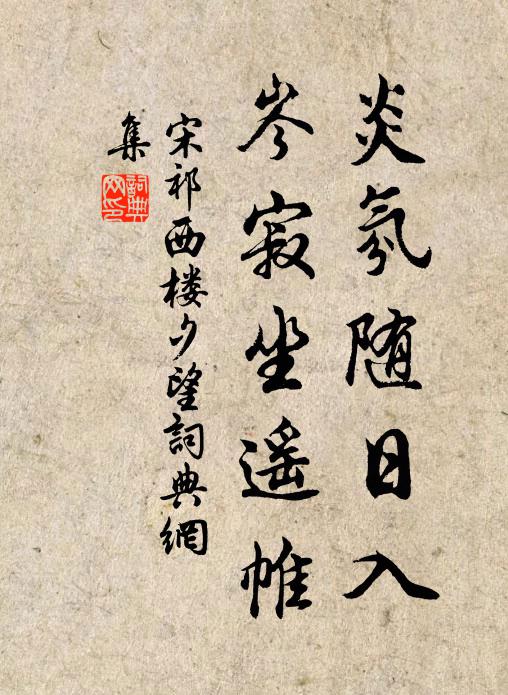 炎氛随日入
岑寂坐遥帷
宋祁西楼夕望詞典網
集
詞典
网印